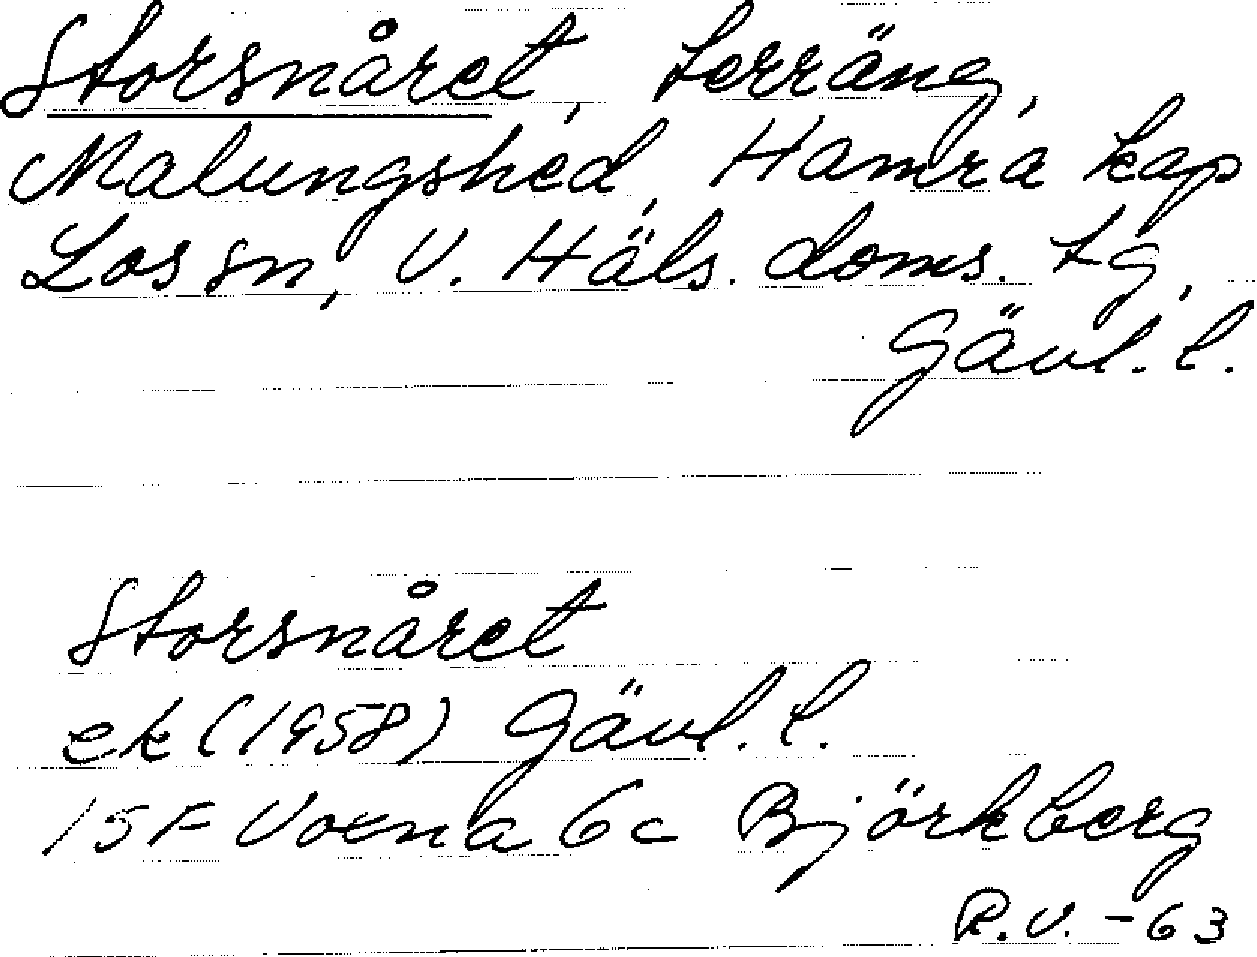 Storsnåret, terräng,
Malungshed, Hamra kap
Los sn, V. Häls. doms. tg,
Gävl. l.
Storsnåret
ek (1958) Gävl. l.
15F Voxna 6c Björkberg
R.V. -63